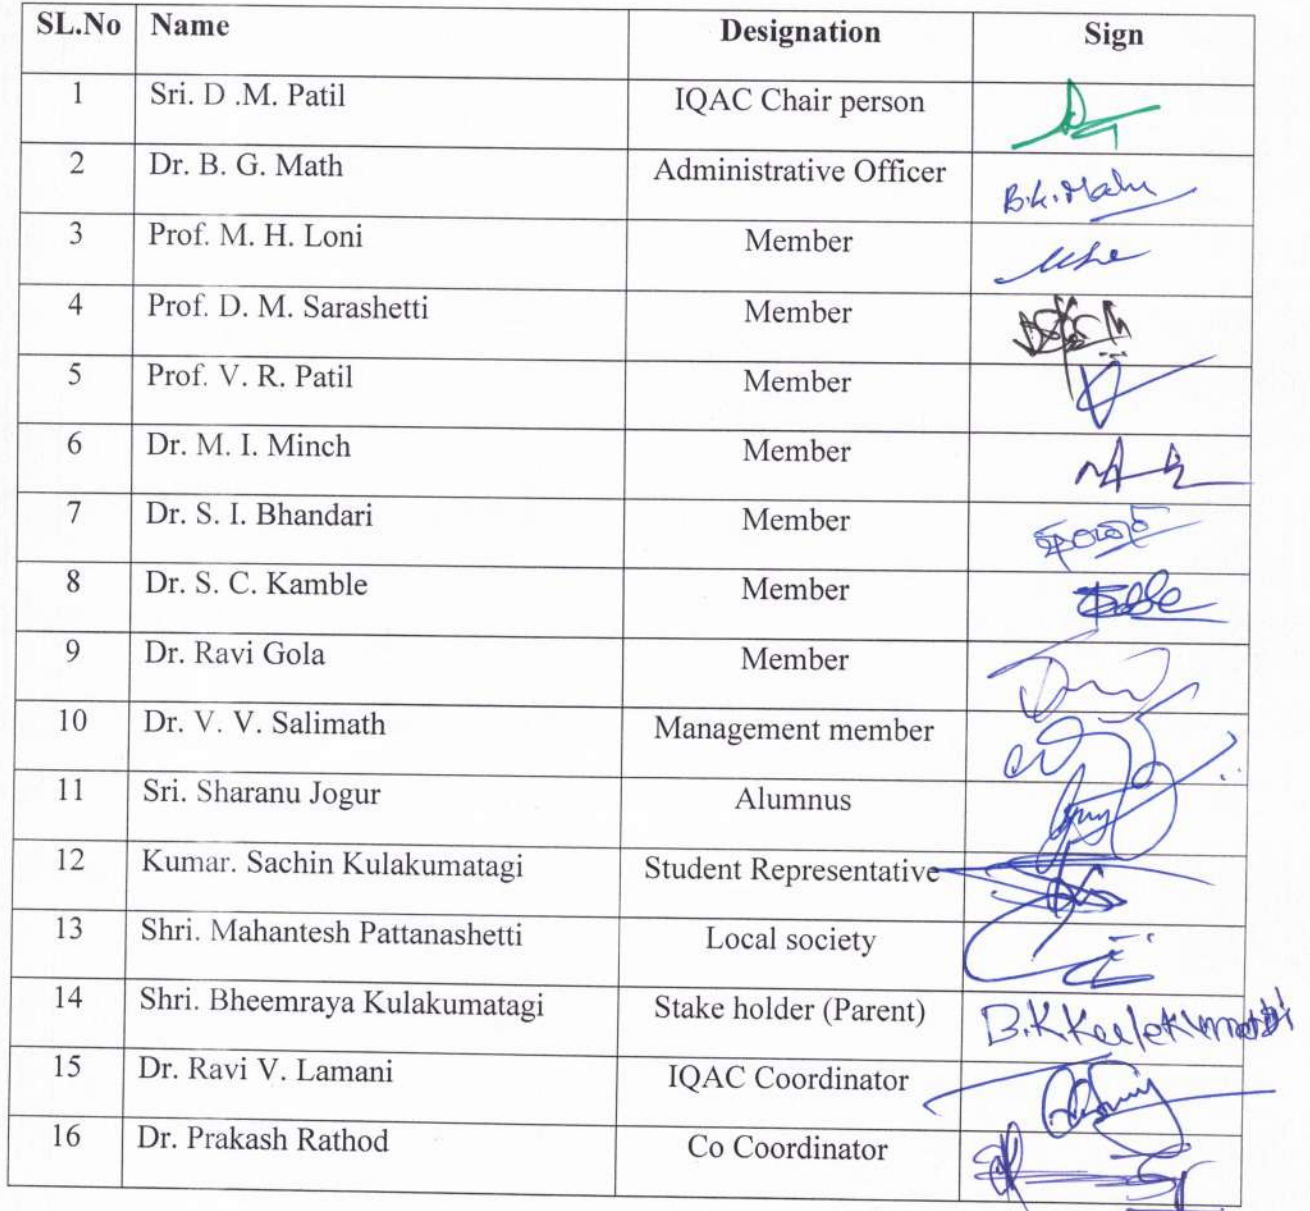 SL.No Name Designation Sign
1 Sri. D .M. Patil IQAC Chair person
2 Dr. B. G. Math Administrative Officer
3 Prof. M. H. Loni Member
4 Prof. D. M. Sarashetti Member
5 Prof. V. R. Patil Member
6 Dr. M. I. Minch Member
7 Dr. S. I. Bhandari Member
8 Dr. S. C. Kamble Member
9 Dr. Ravi Gola Member
10 Dr. V. V. Salimath Management member
11 Sri. Sharanu Jogur Alumnus
12 Kumar. Sachin Kulakumatagi Student Representative
13 Shri. Mahantesh Pattanashetti Local society
14 Shri. Bheemraya Kulakumatagi Stake holder (Parent)
15 Dr. Ravi V. Lamani IQAC Coordinator
16 Dr. Prakash Rathod Co Coordinator